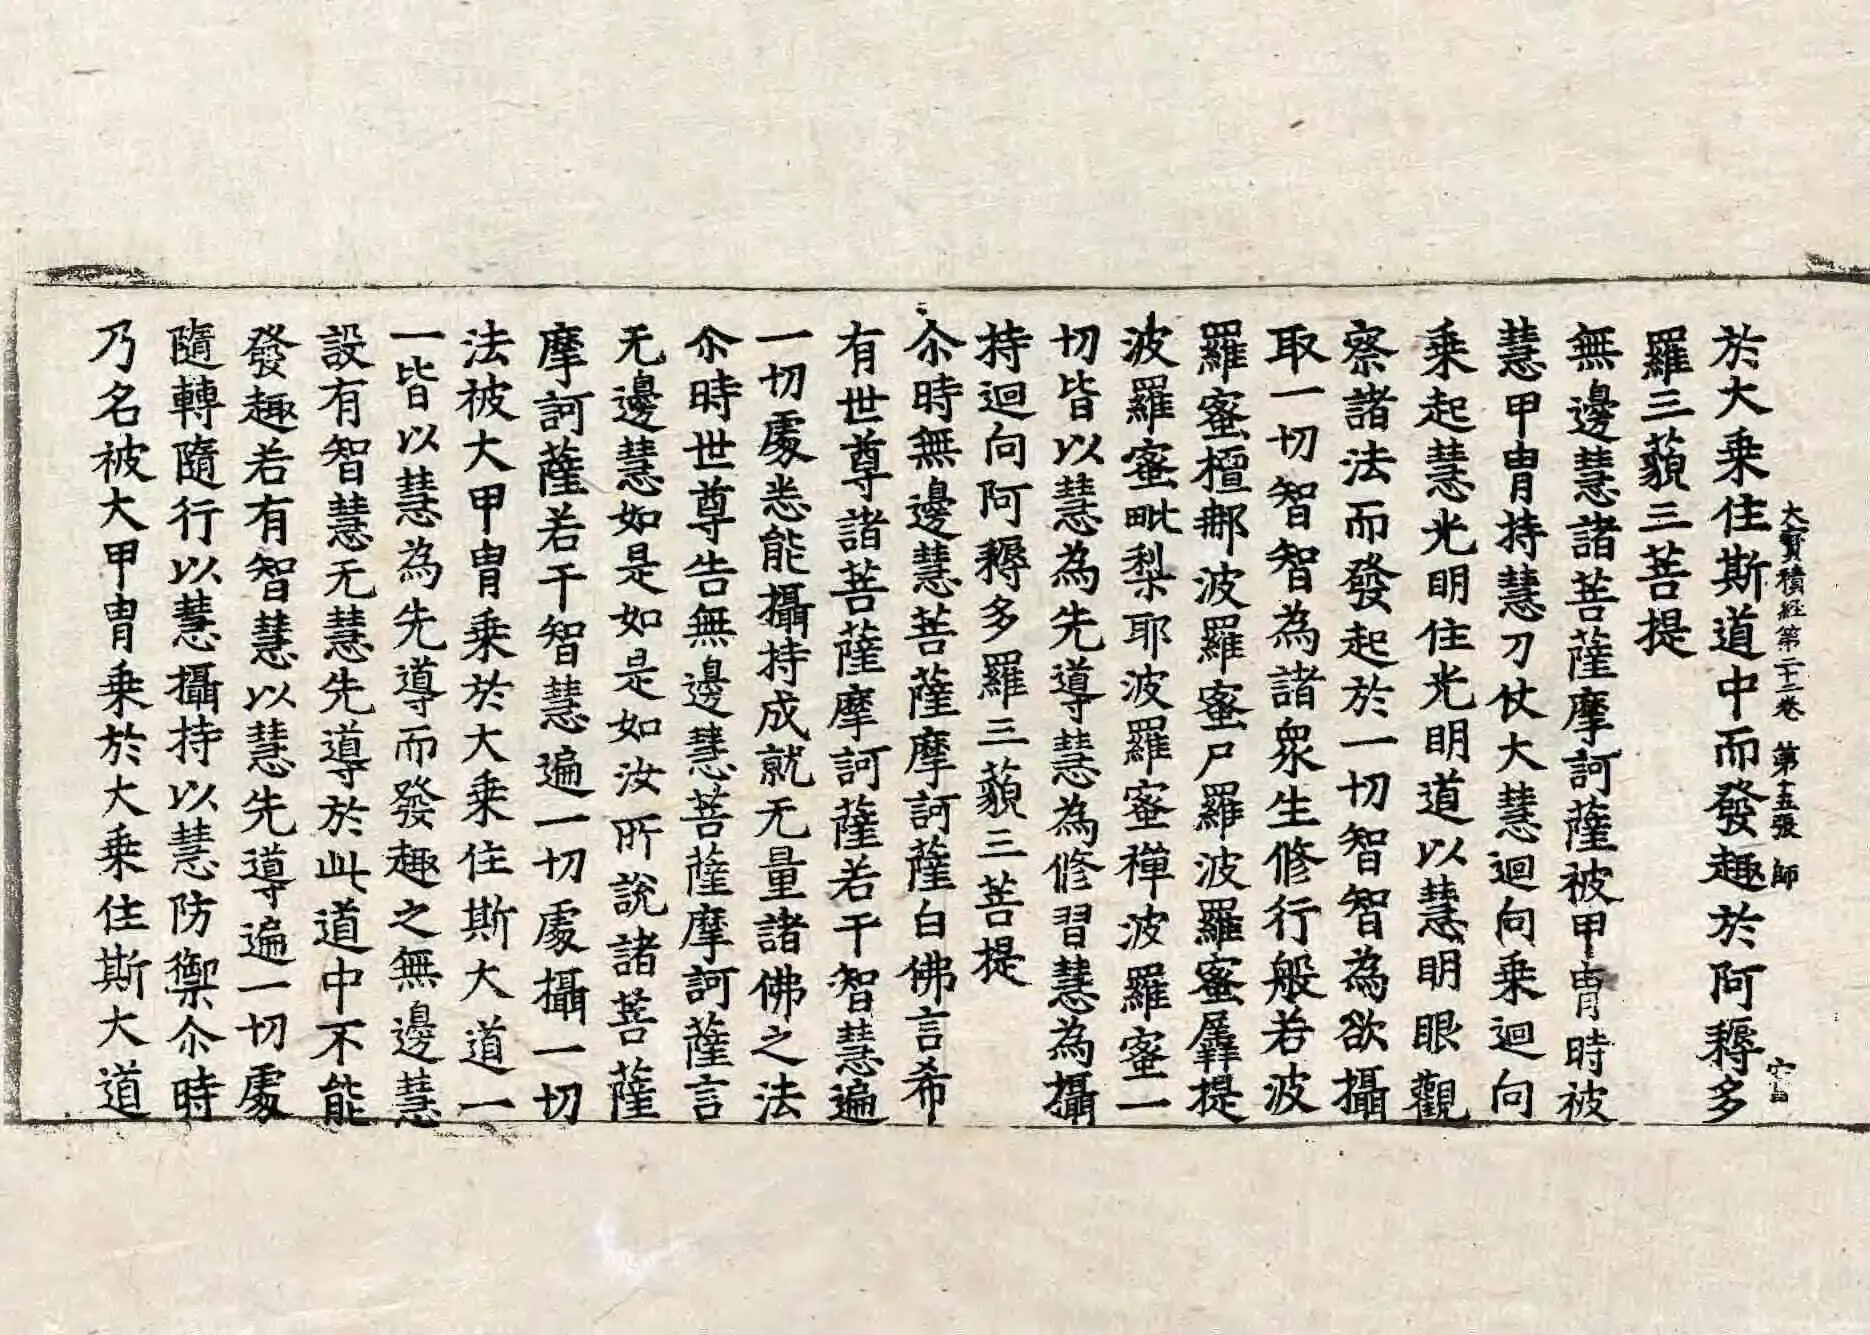 大寶積經第二十二卷 第十五張 師
於大乗住斯道中而發趣於阿耨多
羅三藐三菩提
無邊慧諸菩薩摩訶薩被甲冑時被
慧甲冑持慧刀仗大慧迴向乗迴向
乗起慧光明住光明道以慧明眼觀
察諸法而發起於一切智智為欲攝
取一切智智為諸衆生修行般若波
羅蜜檀那波羅蜜尸羅波羅蜜羼提
波羅蜜毗梨耶波羅蜜禪波羅蜜一
切皆以慧為先導慧為修習慧為攝
持迴向阿耨多羅三藐三菩提
尒時無邊慧菩薩摩訶薩白佛言希
有世尊諸菩薩摩訶薩若干智慧遍
一切處悉能攝持成就无量諸佛之法
尒時世尊告無邊慧菩薩摩訶薩言
无邊慧如是如是如汝所說諸菩薩
摩訶薩若干智慧遍一切處攝一切
法被大甲冑乗於大乗住斯大道一
一皆以慧為先導而發趣之無邊慧
設有智慧无慧先導於此道中不能
發趣若有智慧以慧先導遍一切處
隨轉隨行以慧攝持以慧防禦尒時
乃名被大甲冑乗於大乗住斯大道